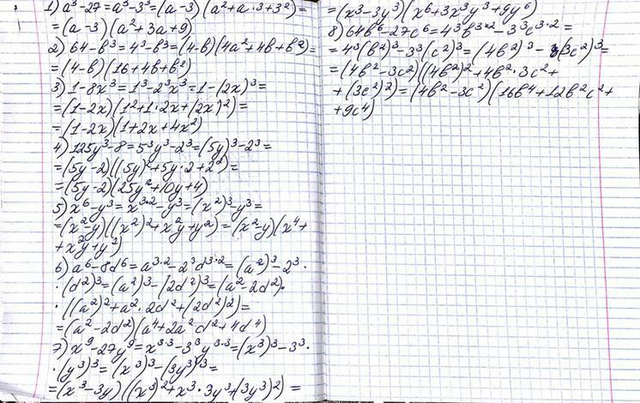 1) a³-27=a³-3³=(a-3)(a²+a·3+3²)=
=(a-3)(a²+3a+9)
2) 64-b³=4³-b³=(4-b)(4a²+4b+b²)=
=(4-b)(16+4b+b²)
3) 1-8x³=1³-2³x³=1-(2x)³=
=(1-2x)(1²+1·2x+(2x)²)=
=(1-2x)(1+2x+4x²)
4) 125y³-8=5³y³-2³=(5y)³-2³=
=(5y-2)((5y)²+5y·2+2²)=
=(5y-2)(25y²+10y+4)
5) x⁶-y³=x³·²-y³=(x²)³-y³=
=(x²-y)((x²)²+x²y+y²)=(x²-y)(x⁴+
+x²y+y³)
6) a⁶-8d⁶=a³·²-2³d³·²=(a²)³-2³·
·(d²)³=(a²)³-(2d²)³=(a²-2d²)·
·((a²)²+a²·2d²+(2d²)²)=
=(a²-2d²)(a⁴+2a²d²+4d⁴)
7) x⁹-27y⁹=x³·³-3³y³·³=(x³)³-3³·
·(y³)³=(x³)³-(3y³)³=
=(x³-3y)((x³)²+x³·3y³+(3y³)²)=
=(x³-3y³)(x⁶+3x³y³+9y⁶)
8) 64b⁶-27c⁶=4³b³·²-3³c³·²=
=4³(b²)³-3³(c²)³=(4b²)³-(3c²)³=
=(4b²-3c²)((4b²)²+4b²·3c²+
+(3c²)²)=(4b²-3c²)(16b⁴+12b²c²+
+9c⁴)